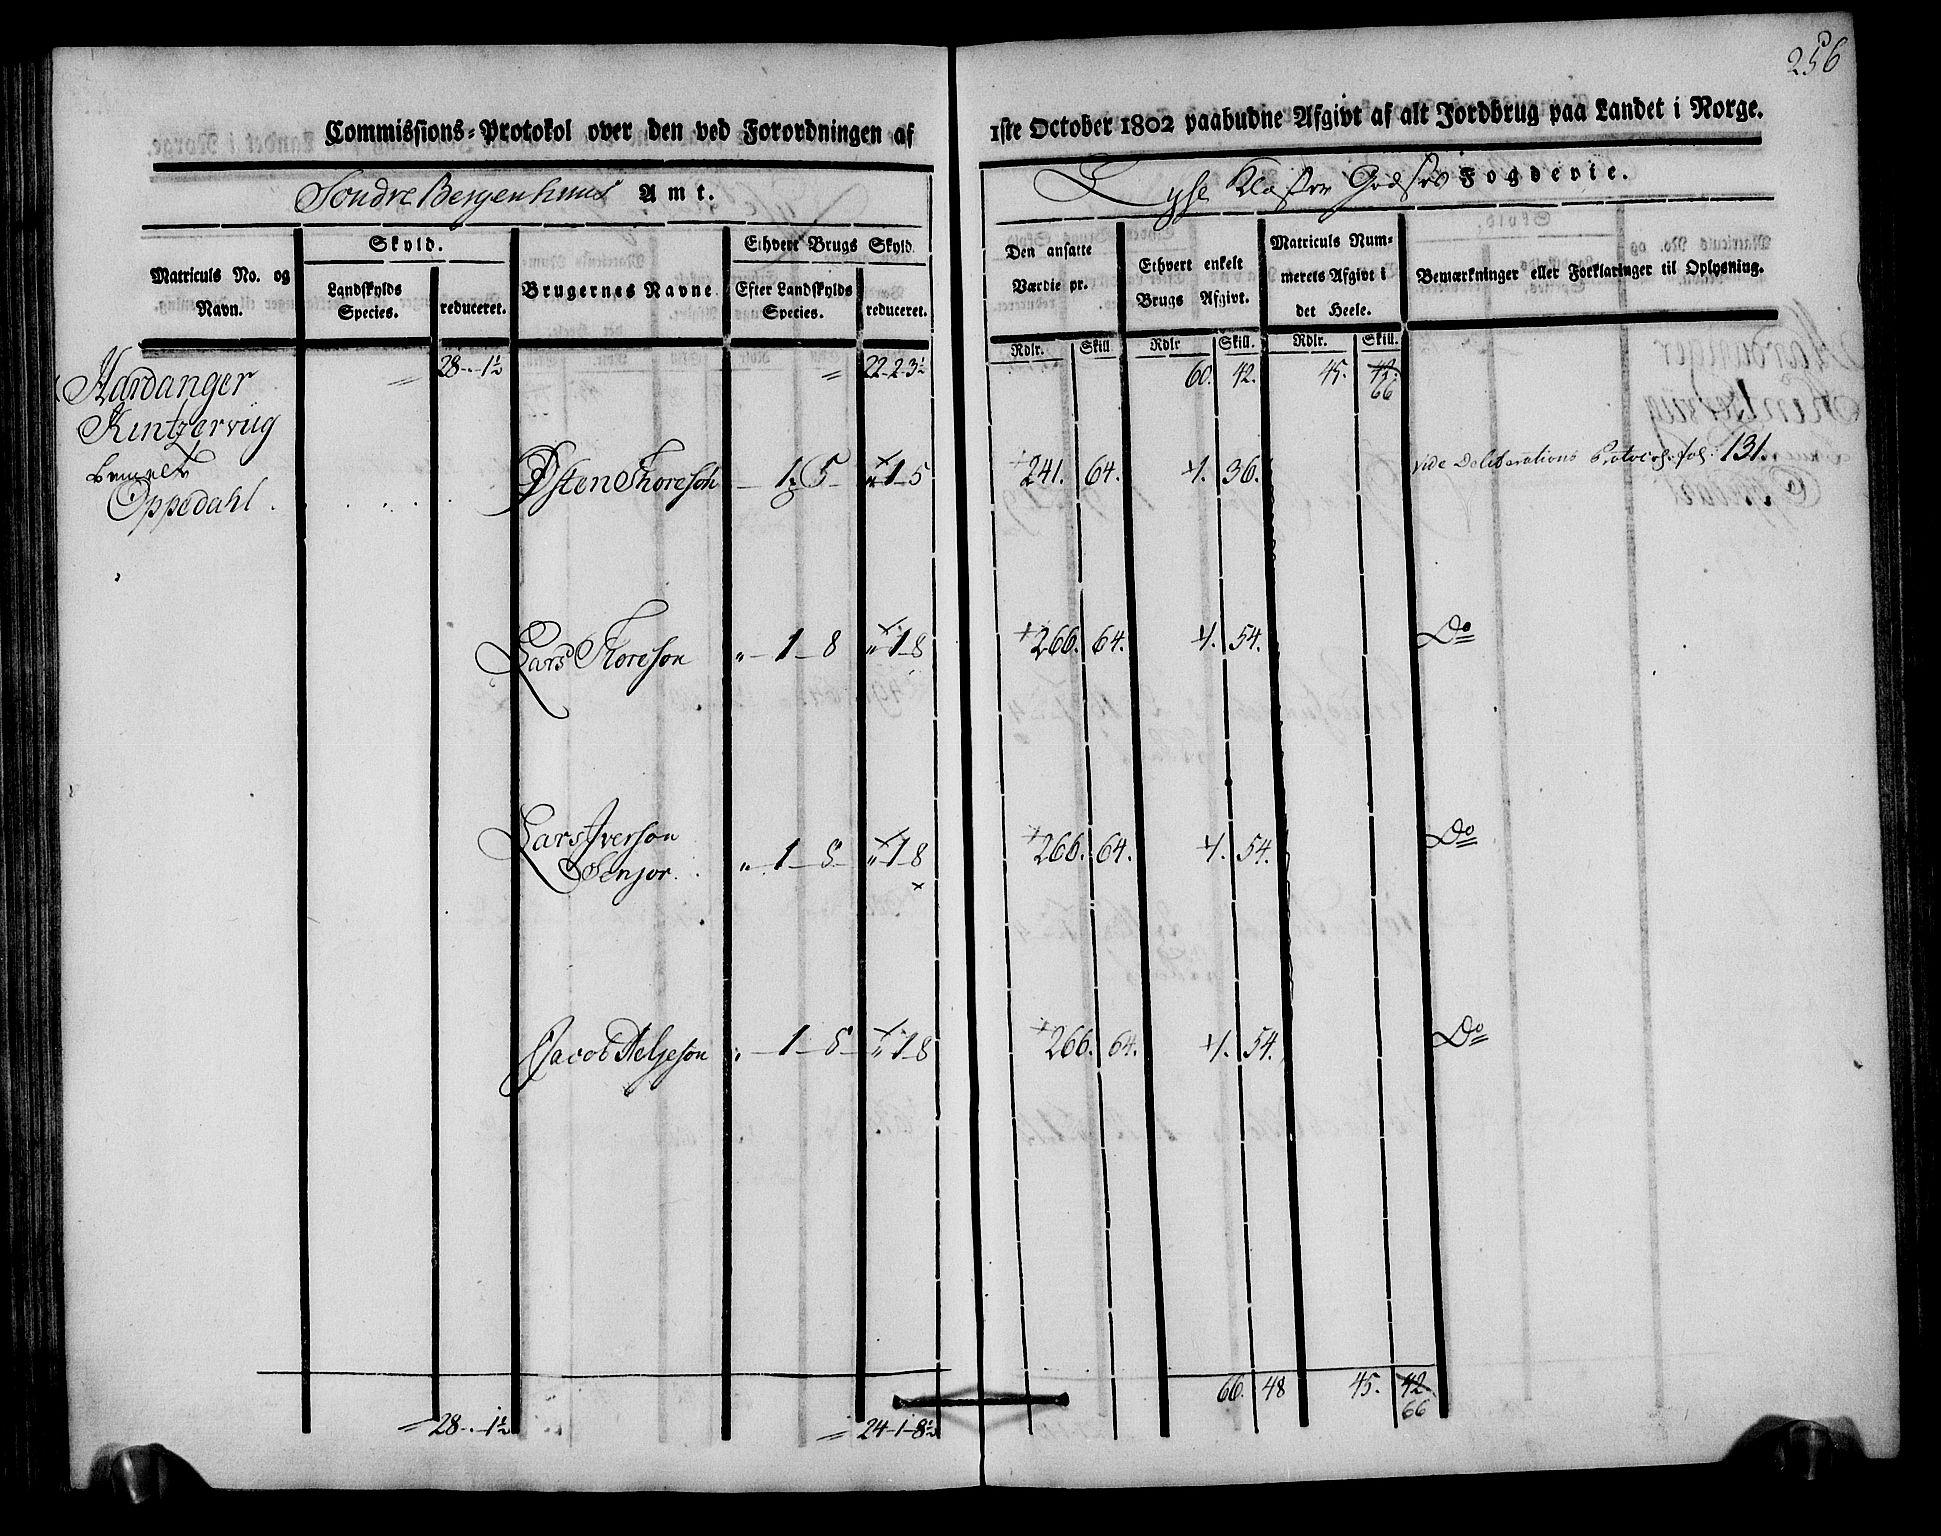 256
Commissions-Protokol over den ved Forordningen af 1ste October 1802 paabudne Afgivt af alt Jordbrug paa Landet i Norge.
Søndre Bergenhuus Amt. Lyse Kloster Godses Fogderie.
Matriculs No. og Navn.
Skyld.
Landskylds Species.
reduceret.
Brugernes Navne
Ethvert Brugs Skyld.
Efter Landskylds Species.
reduceret.
Den ansatte Værdie pr.
Ethvert enkelt Brugs Afgivt.
Matriculs Nummerets Afgivt i det Heele.
Bemærkninger eller Forklaringer til Oplysning.
Rdlr. Skill Rdlr Skill. Rdlr. Skill.
Hardanger = 28 - . 1½ = 22-2-3½ 60. 42. 45. 42. 66
Kintzerviig
Oppedahl . Østen Thoreson 1. 5 1-5 241. 64. 1. 36. vide Deliberations Protocol. fol. 131.
Lars Thoreson „ 1 8 „ 1-8 266. 64. 1. 54. Do
Lars Iverson
Senjor. „ 1 8 „ 1-8 266. 64. 1. 54. Do
Jacob Helgeson „ 1 8 „ 1-8 266. 64. 1. 54. Do
= 28 - . 1½ = 24-1-8½ 66. 48 45. 42. 66